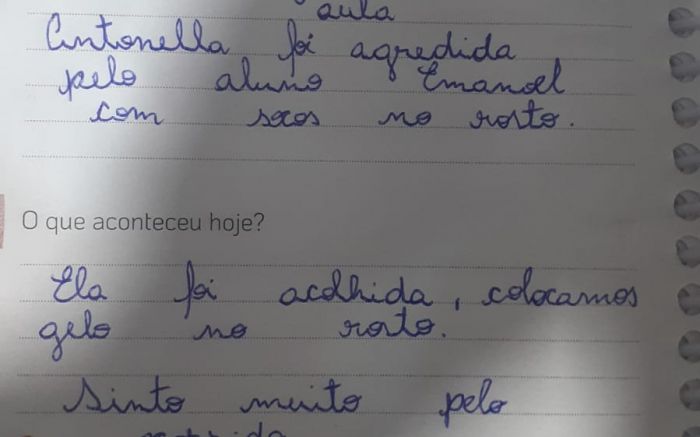 aula
Antonella foi agredida
pelo aluno Emanoel
com socos no rosto.
O que aconteceu hoje?
Ela foi acolhida, colocamos
gelo no rosto.
Sinto muito pelo